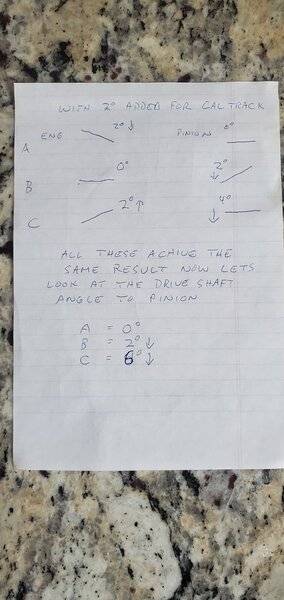 WITH 2° ADDED FOR CALTRACK
ENG 2° ↓ PINION 0°
A
B 0° 2° ↓
C 2° ↑ 4° ↓
ALL THESE ACHIVE THE
SAME RESULT NOW LETS
LOOK AT THE DRIVE SHAFT
ANGLE TO PINION
A = 0°
B = 2° ↓
C = 6° ↓